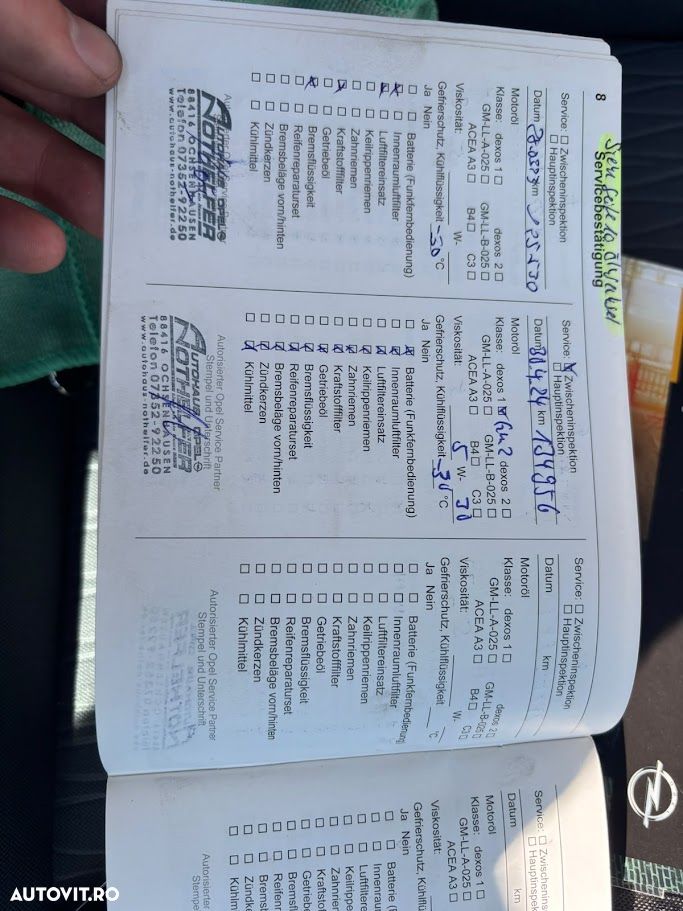 8
Servicebestätigung
Service: ☐ Zwischeninspektion
☐ Hauptinspektion
Datum km
Motoröl
Klasse: dexos 1 ☐ dexos 2 ☐
GM-LL-A-025 ☐ GM-LL-B-025 ☐
ACEA A3 ☐ B4 ☐ C3 ☐
Viskosität: W-
Gefrierschutz, Kühlflüssigkeit -30 °C
Ja Nein
☐ ☐ Batterie (Funkfernbedienung)
☒ ☐ Innenraumluftfilter
☒ ☐ Luftfiltereinsatz
☐ ☐ Keilrippenriemen
☐ ☐ Zahnriemen
☒ ☐ Kraftstofffilter
☐ ☐ Getriebeöl
☒ ☐ Bremsflüssigkeit
☐ ☐ Reifenreparaturset
☐ ☐ Bremsbeläge vorn/hinten
☐ ☐ Zündkerzen
☐ ☐ Kühlmittel
AUTOHAUS OPEL
NOTHELFER
88416 OCHSENHAUSEN
Telefon 07352-92250
www.autohaus-nothelfer.de
Service: ☒ Zwischeninspektion
☐ Hauptinspektion
Datum km 134956
Motoröl
Klasse: dexos 1 ☒ dexos 2 ☐
GM-LL-A-025 ☐ GM-LL-B-025 ☐
ACEA A3 ☐ B4 ☐ C3 ☐
Viskosität: 5 W- 30
Gefrierschutz, Kühlflüssigkeit -30 °C
Ja Nein
☐ ☒ Batterie (Funkfernbedienung)
☐ ☒ Innenraumluftfilter
☐ ☒ Luftfiltereinsatz
☐ ☒ Keilrippenriemen
☐ ☒ Zahnriemen
☐ ☒ Kraftstofffilter
☐ ☒ Getriebeöl
☐ ☒ Bremsflüssigkeit
☐ ☒ Reifenreparaturset
☐ ☒ Bremsbeläge vorn/hinten
☐ ☒ Zündkerzen
☐ ☒ Kühlmittel
Autorisierter Opel Service Partner
Stempel und Unterschrift
AUTOHAUS OPEL
NOTHELFER
88416 OCHSENHAUSEN
Telefon 07352-92250
www.autohaus-nothelfer.de
Service: ☐ Zwischeninspektion
☐ Hauptinspektion
Datum km
Motoröl
Klasse: dexos 1 ☐ dexos 2 ☐
GM-LL-A-025 ☐ GM-LL-B-025 ☐
ACEA A3 ☐ B4 ☐ C3 ☐
Viskosität: W-
Gefrierschutz, Kühlflüssigkeit °C
Ja Nein
☐ ☐ Batterie (Funkfernbedienung)
☐ ☐ Innenraumluftfilter
☐ ☐ Luftfiltereinsatz
☐ ☐ Keilrippenriemen
☐ ☐ Zahnriemen
☐ ☐ Kraftstofffilter
☐ ☐ Getriebeöl
☐ ☐ Bremsflüssigkeit
☐ ☐ Reifenreparaturset
☐ ☐ Bremsbeläge vorn/hinten
☐ ☐ Zündkerzen
☐ ☐ Kühlmittel
Autorisierter Opel Service Partner
Stempel und Unterschrift
Service: ☐ Zwischenins
☐ Hauptinspekt
Datum km
Motoröl
Klasse: dexos 1 ☐
GM-LL-A-025 ☐
ACEA A3 ☐
Viskosität:
Gefrierschutz, Kühlflüs
Ja Nein
☐ ☐ Batterie (F
☐ ☐ Innenraum
☐ ☐ Luftfilter
☐ ☐ Keilripp
☐ ☐ Zahnrie
☐ ☐ Kraftsto
☐ ☐ Getriebe
☐ ☐ Bremsfl
☐ ☐ Reifen
☐ ☐ Bremsb
☐ ☐ Zündk
☐ ☐ Kühlm
Autorisierter
Stempe
AUTOVIT.RO